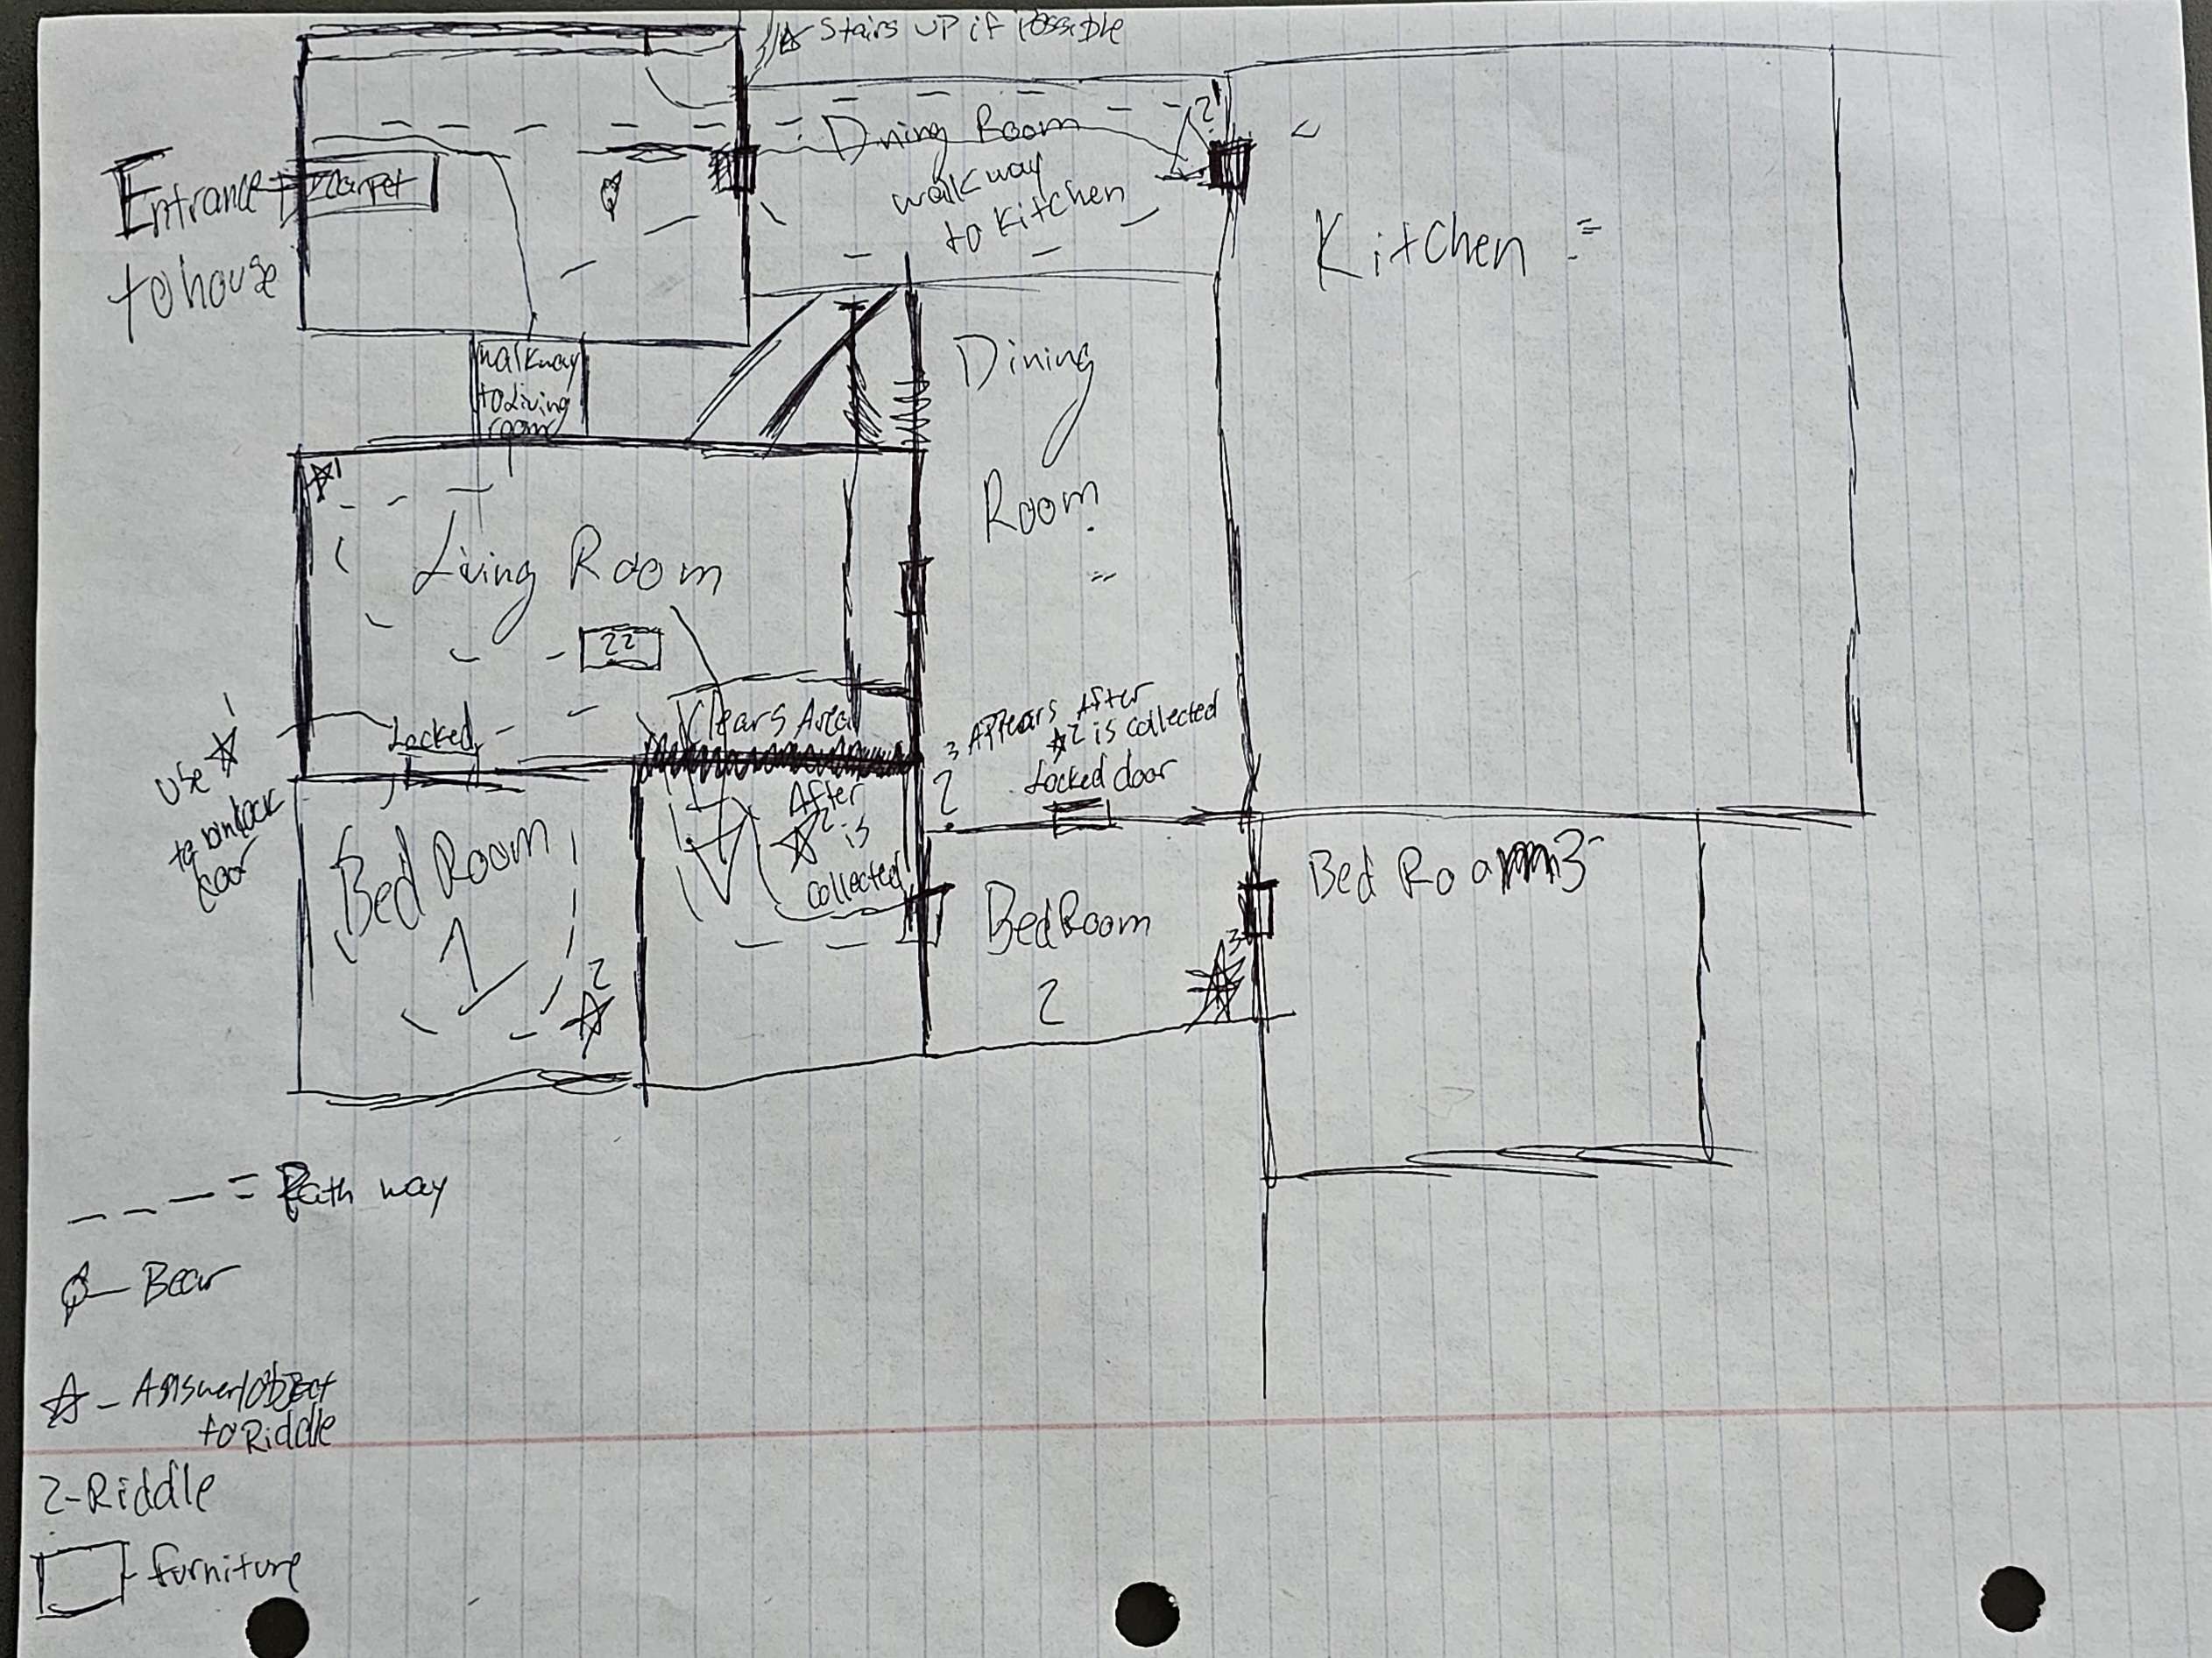 Stairs up if Possible
Entrance
to house
Carpet
Dining Room
walkway
to Kitchen
?1
Kitchen
walkway
to Living
room
Dining
Room
1
Living Room
22
Clears Area
Locked
use
1
to unlock
door
3 Appears After
2 is collected
Locked door
?
After
2 is
collected
Bed Room
1
2
BedRoom
2
3
Bed Room 3
= Path way
- Bear
- Answer/object
to Riddle
2-Riddle
- furniture